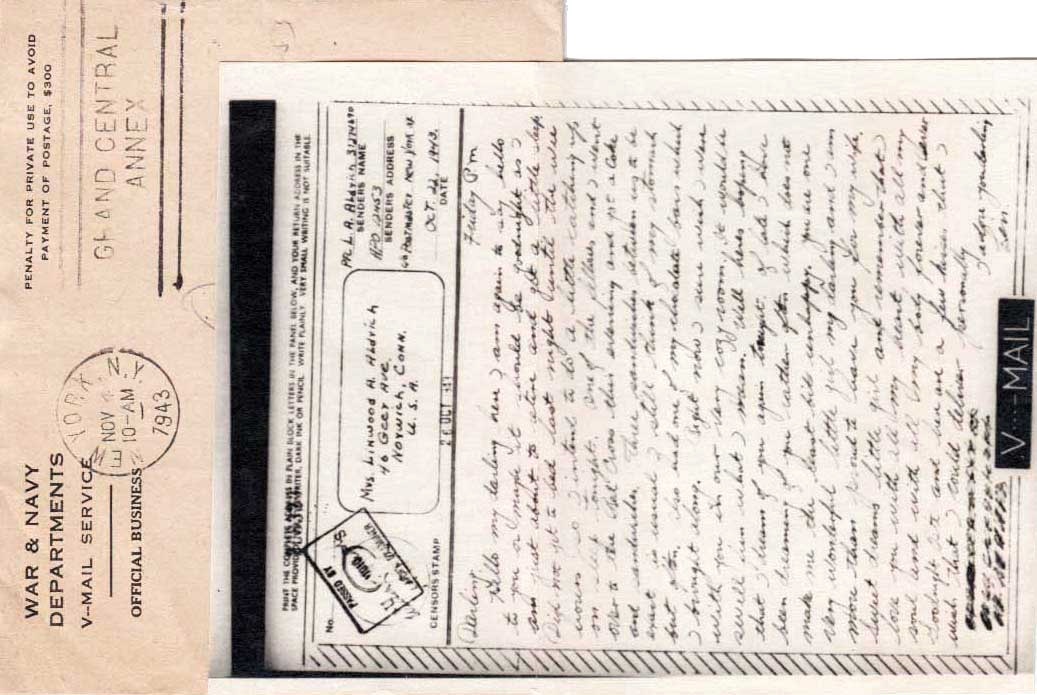 WAR & NAVY
DEPARTMENTS
V--MAIL SERVICE
OFFICIAL BUSINESS
NEW YORK, N.Y.
NOV
10-AM
1943
PENALTY FOR PRIVATE USE TO AVOID
PAYMENT OF POSTAGE, $300
GRAND CENTRAL
ANNEX
PRINT THE COMPLETE ADDRESS IN PLAIN BLOCK LETTERS IN THE PANEL BELOW, AND YOUR RETURN ADDRESS IN THE
SPACE PROVIDED. TYPEWRITER, DARK INK OR PENCIL. WRITE PLAINLY. VERY SMALL WRITING IS NOT SUITABLE.
No.
PASSED BY
U.S.
ARMY EXAMINER
CENSORS STAMP
Mrs LINWOOD A. Aldrich
46 Geer Ave.
NORWICH, CONN.
U.S.A.
26 OCT
Pfc L. A. Aldrich
SENDERS NAME
APO 12453
SENDERS ADDRESS
℅ Postmaster New York NY
OCT. 22, 1943.
DATE
Friday Pm
Darling
Hello my darling here I am again to say hello
to you or maybe it would be goodnight as I
am just about to retire and get a little sleep.
Did not get to bed last night until the wee
hours so I intend to do a little catching up
on sleep tonight. One of the fellows and I went
over to the Red Cross this evening and got a coke
and sandwiches. Three sandwiches between us to be
exact as usual I still think of my stomach
but often, also had one of my chocolate bars which
I brought along. Right now I sure wish I were
with you in our very cozy room, it would be
swell on that moon. Well heres hoping
that I dream of you again tonight. of late I have
been dreaming of you rather often which does not
make me the least bits unhappy. you are one
very wonderful little girl my darling and I am
more than proud to have you for my wife,
sweet dreams little girl and remember that
love you with all my heart, with all my
soul and with all my body forever and ever
Goodnight Pete and here are a few kisses that I
wish that I could deliver personally
I adore you darling
Len
V···—MAIL